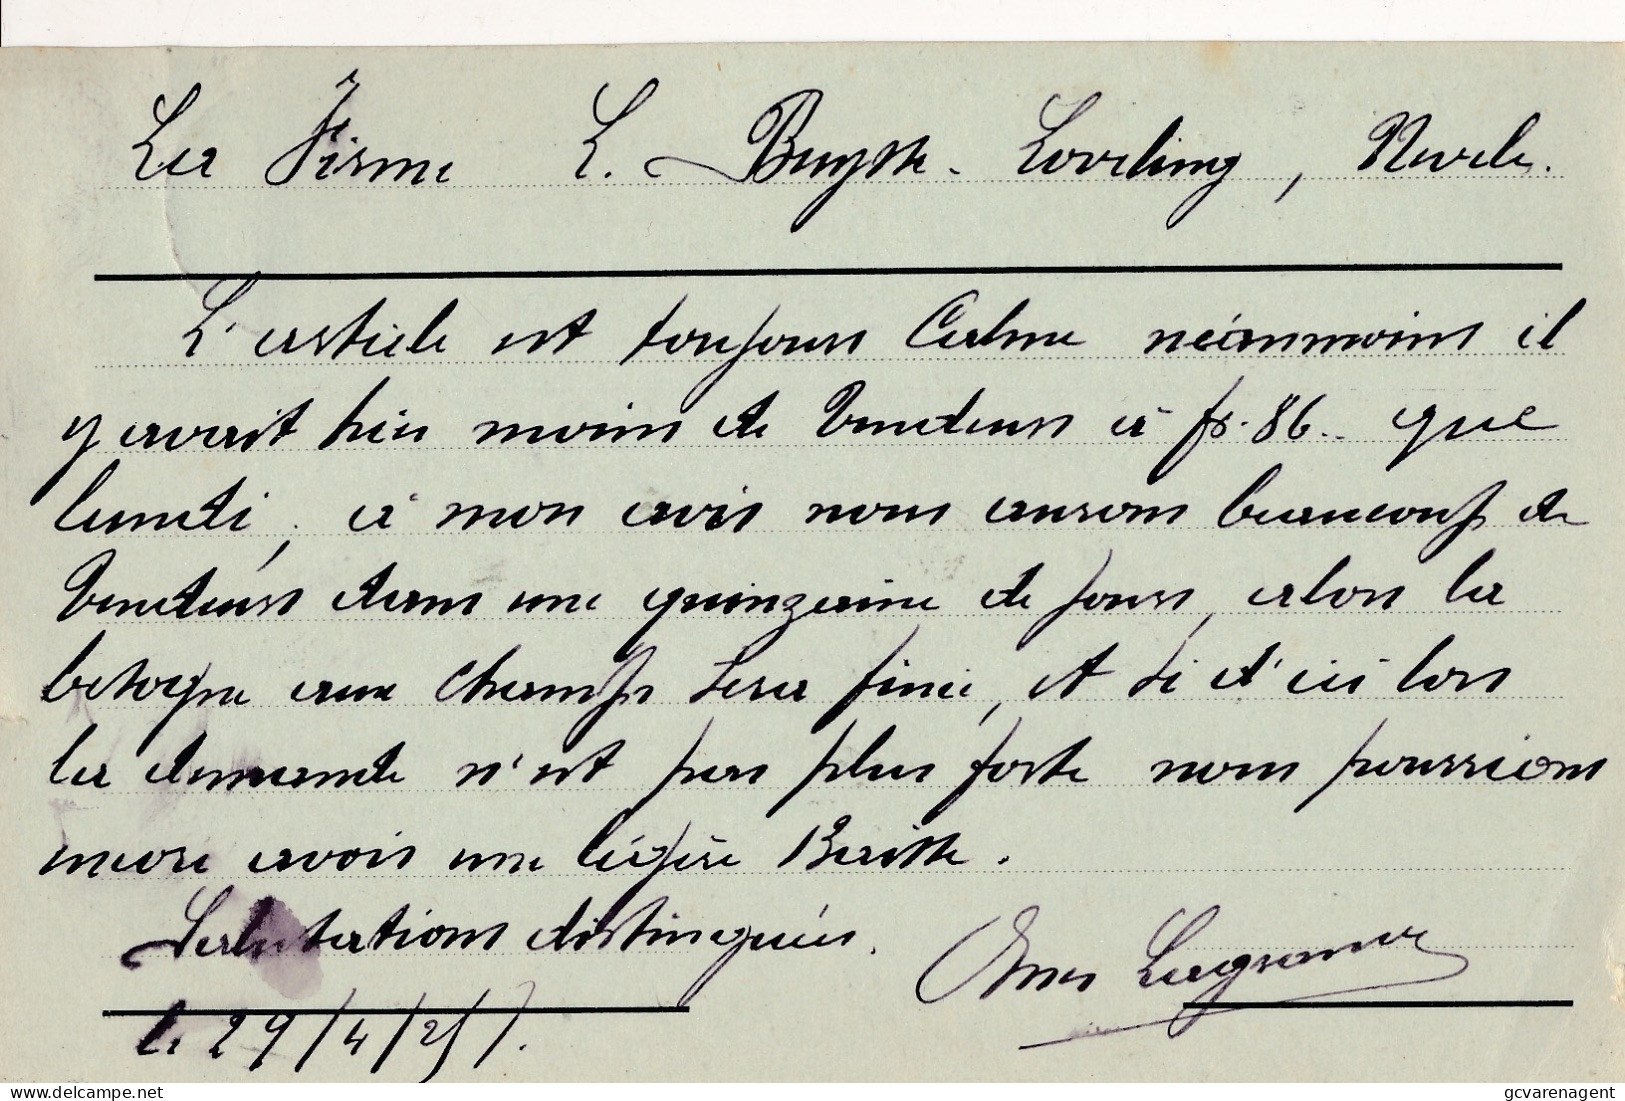 La Firme L. Buysse-Loveling, Nevele.
L'article est toujours Calme néanmoins il
y avait hier moins de Vendeurs à fr. 86.- que
lundi, à mon avis nous aurons beaucoup de
Vendeurs dans une quinzaine de jours, alors la
besogne aux champs sera finie, et si d'ici lors
la demande n'est pas plus forte nous poussions
encore avoir une légère Baisse.
Salutations distinguées.
Lagrange
le 29/4/25/.
Delcampe.net
gcvarenagent